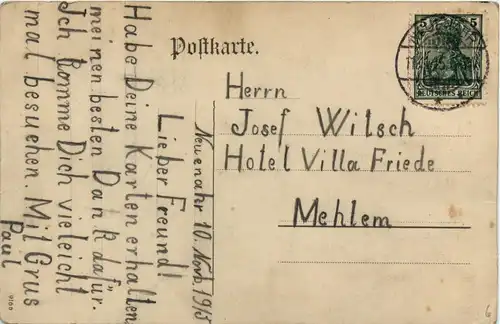 Postkarte.
5 5
DEUTSCHES REICH
Herrn
Josef Witsch
Hotel Villa Friede
Mehlem
Neuenahr 10. Nov. 1915
Lieber Freund!
Habe Deine Karten erhalten,
meinen besten Dank dafür.
Ich komme Dich vieleicht
mal besuchen. Mit Grus
Paul